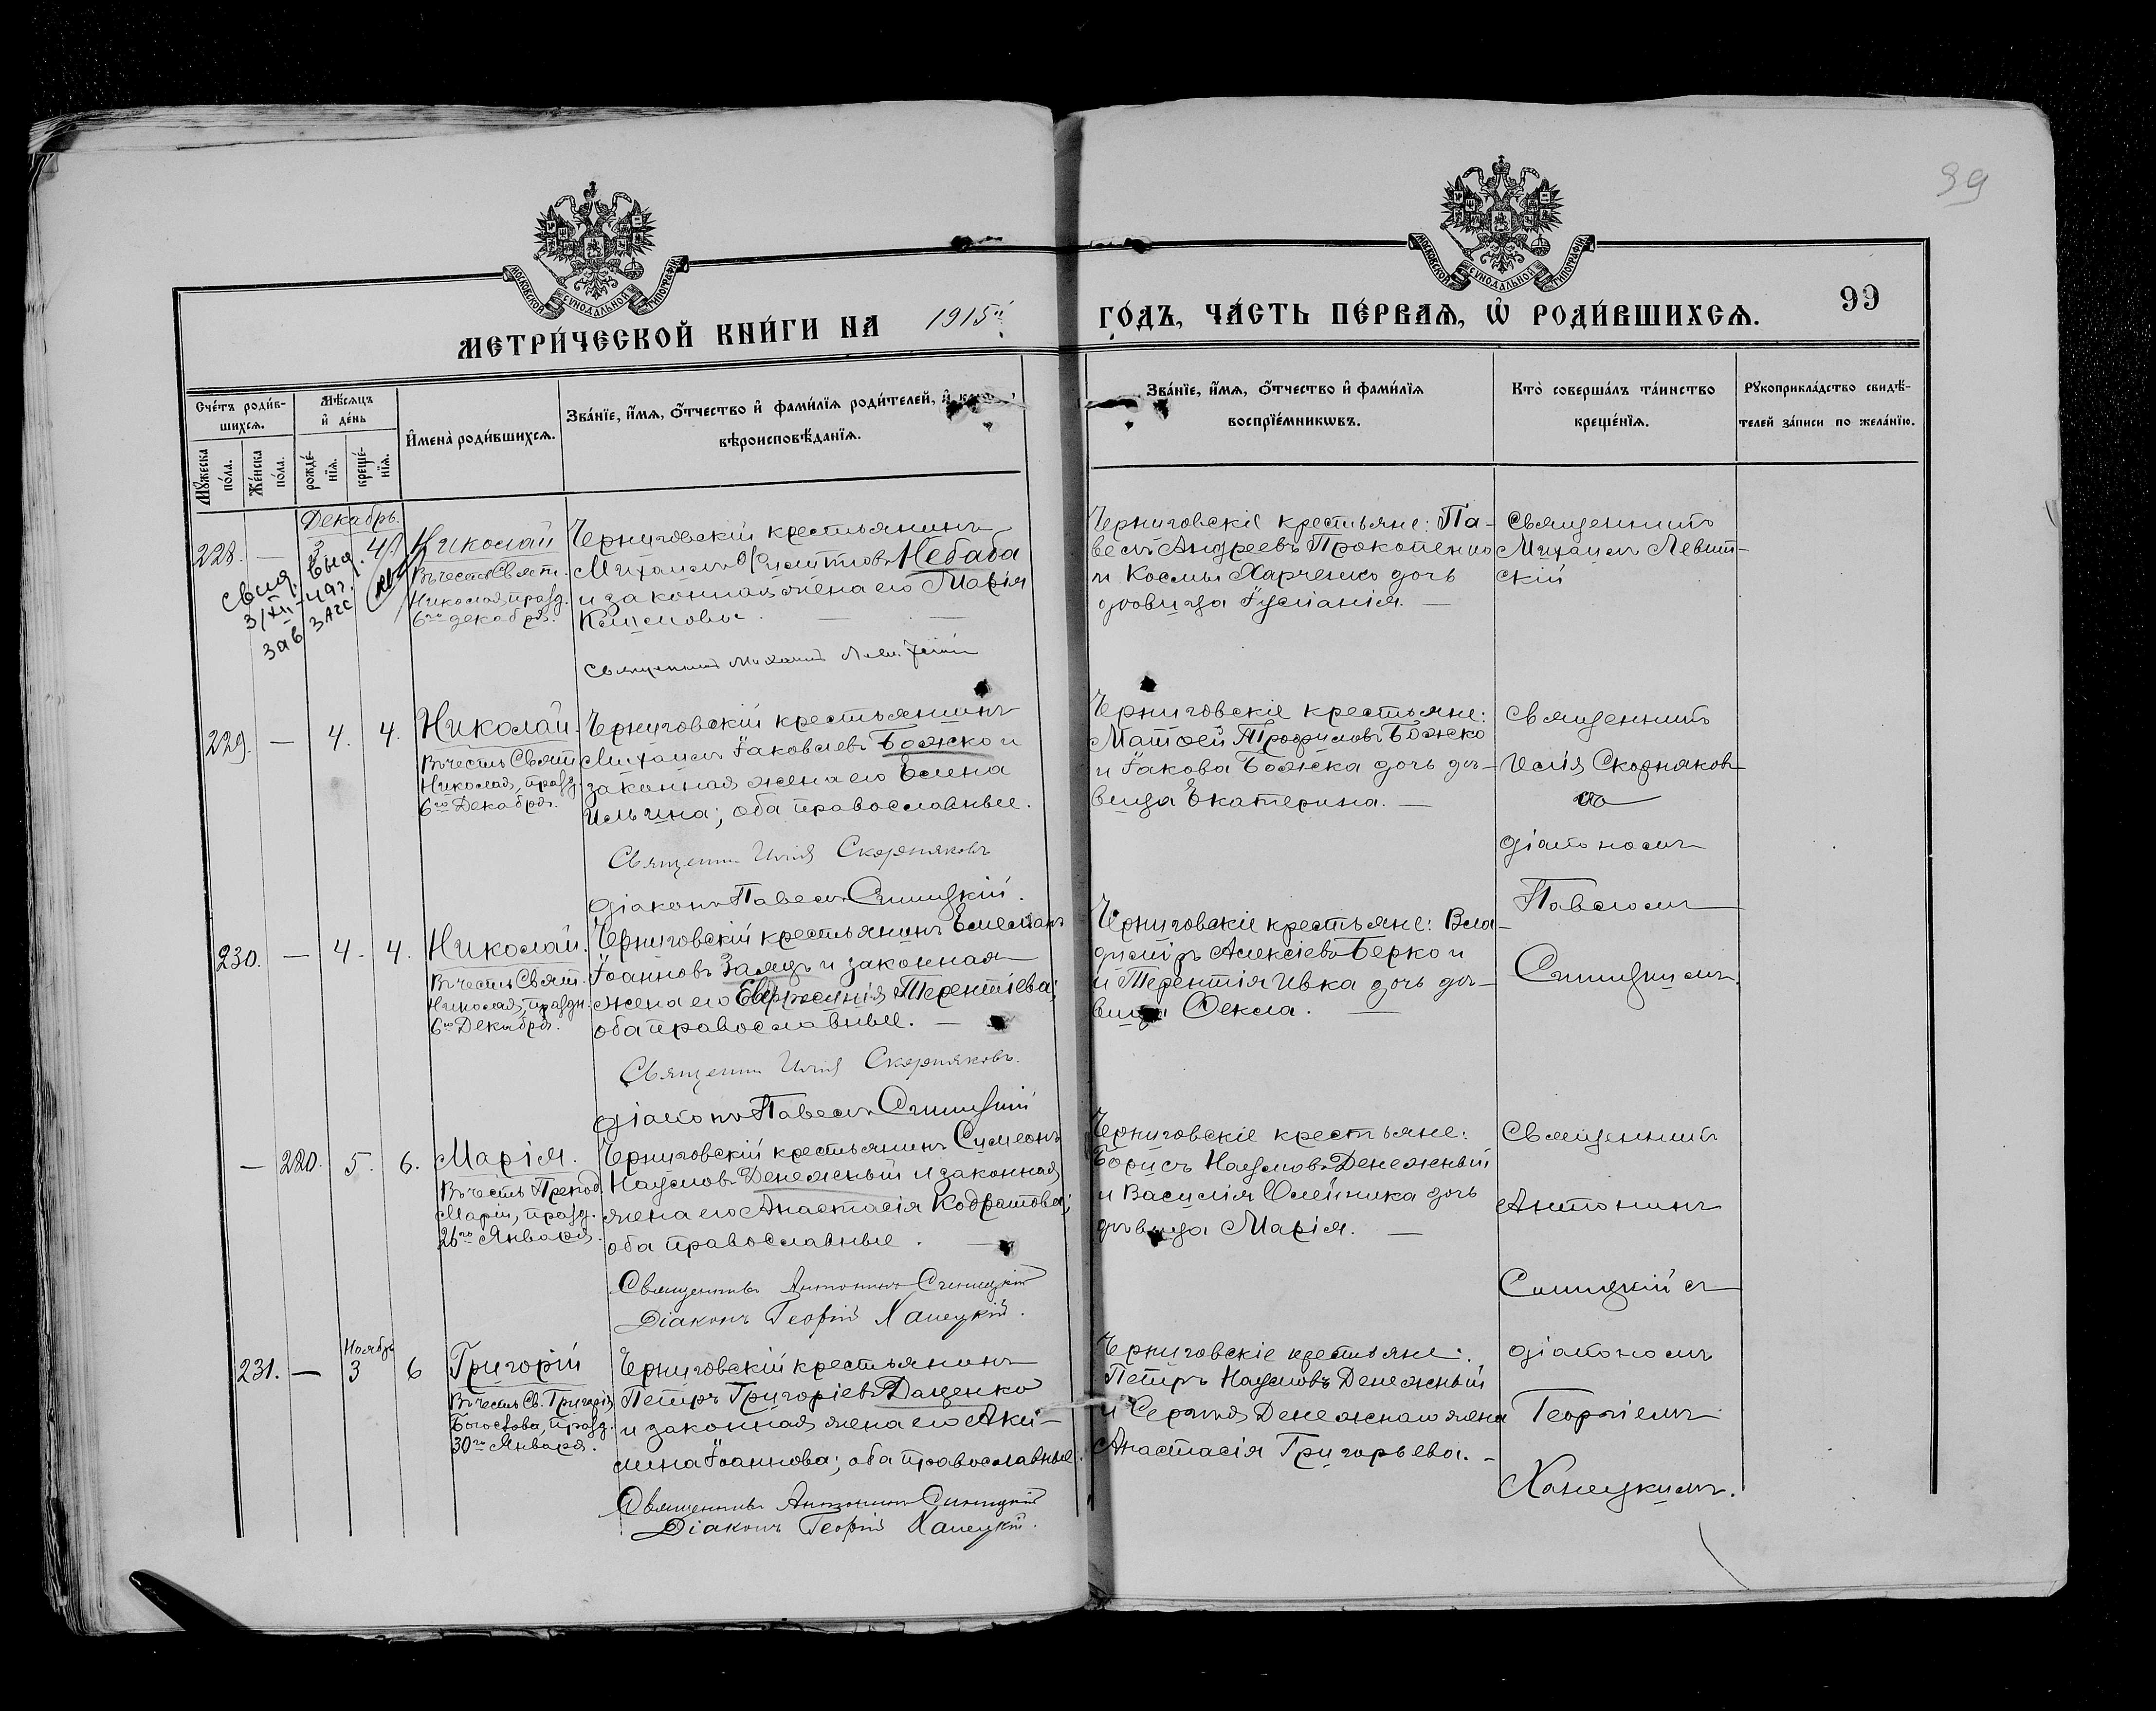 99
МОСКОВСКОЙ СѴНОДАЛЬНОЙ ТИПОГРАФІИ
МОСКОВСКОЙ СѴНОДАЛЬНОЙ ТИПОГРАФІИ
МЕТРИ́ЧЕСКОЙ КНИ́ГИ НА 1915й ГО́ДЪ, ЧА́СТЬ ПЕ́РВАѦ, Ѡ҆ РОДИ́ВШИХСѦ. 99
Сче́тъ роди́в-
шихсѧ.
Мꙋ́жеска по́ла.
Же́нска по́ла.
Мѣ́сѧцъ и҆ де́нь
рожде́-нїѧ.
креще́-нїѧ.
И҆мена̀ роди́вшихсѧ.
Зва́нїе, и҆́мѧ, ѻ҆́тчество и҆ фами́лїѧ роди́телей, и҆
вѣроисповѣ́данїѧ.
Зва́нїе, и҆́мѧ, ѻ҆́тчество и҆ фами́лїѧ
воспрїе́мникѡвъ.
Кто̀ соверша́лъ та́инство
креще́нїѧ.
Рꙋкоприкла́дство свидѣ́-
телей за́писи по жела́нїю.
Декабрь.
228. — 3 4.
Николай
Въ честь Свят.
Николая, празд.
6го декабря.
Свид. выд.
3/XII-49г.
Зав ЗАГС
Черниговскій крестьянинъ
Михаилъ Небаба
и законная жена его Марія
Священникъ Михаилъ Левитскій
Черниговскіе крестьяне: Па-
велъ Андреевъ Прокопенко
и Космы Харченко дочь
дѣвица Іуліанія. —
Священникъ
Михаилъ Левит-
скій
229. — 4. 4.
Николай.
Въ честь Свят.
Николая, празд.
6го Декабря.
Черниговскій крестьянинъ
Михаилъ Іаковлевъ Божко и
законная жена его Елена
Ильина; оба православные.
Священн. Илія Скорняковъ
діаконъ Павелъ Синицкій.
Черниговскіе крестьяне:
Матѳей Трофимовъ Божко
и Іакова Божка дочь дѣ-
вица Екатерина. —
Священникъ
Илія Скорняковъ
съ
діакономъ
Павломъ
Синицкимъ.
230. — 4. 4.
Николай.
Въ честь Свят.
Николая, праздн.
6го Декабря.
Черниговскій крестьянинъ Емеліанъ
Іоанновъ Заяцъ и законная
жена его Терентіева;
оба православные. —
Священн. Илія Скорняковъ.
діаконъ Павелъ Синицкій
Черниговскіе крестьяне: Вла-
диміръ Алексіевъ Берко и
и Терентія Ивка дочь дѣ-
вица Ѳекла. —
— 220. 5. 6.
Марія.
Въ честь Препод.
Маріи, празд.
26го Января.
Черниговскій крестьянинъ Симеонъ
Наумовъ Денежный и законная
жена его Анастасія Кодратова;
оба православные. —
Священникъ Антонинъ Синицкій
Діаконъ Георгій Ханецкій.
Черниговскіе крестьяне:
Борисъ Наумовъ Денежный
и Василія Олейника дочь
дѣвица Марія. —
Священникъ
Антонинъ
Синицкій съ
діакономъ
Георгіемъ
Ханецкимъ.
Ноябрь
231. — 3 6
Григорій
Въ честь Св. Григорія
Богослова, празд.
30го Января.
Черниговскій крестьянинъ
Петръ Григоріевъ Даценко
и законная жена его Аки-
лина Іоаннова; оба православные.
Священникъ Антонинъ Синицкій
Діаконъ Георгій Ханецкій.
Черниговскіе крестьяне:
Петръ Наумовъ Денежный
и Сергія Денежнаго жена
Анастасія Григорьева. —